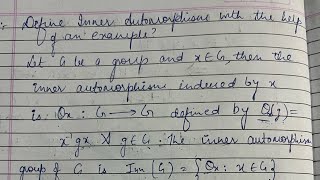 :- Define Inner Automorphisms with the help
of an example?
Let G be a group and x∈G, then the
inner automorphism indexed by x
is: Θx : G ⟶ G defined by Θ(g) =
x⁻¹gx ∀ g∈G. The inner automorphism
group of G is Inn(G) = {Θx : x∈G}